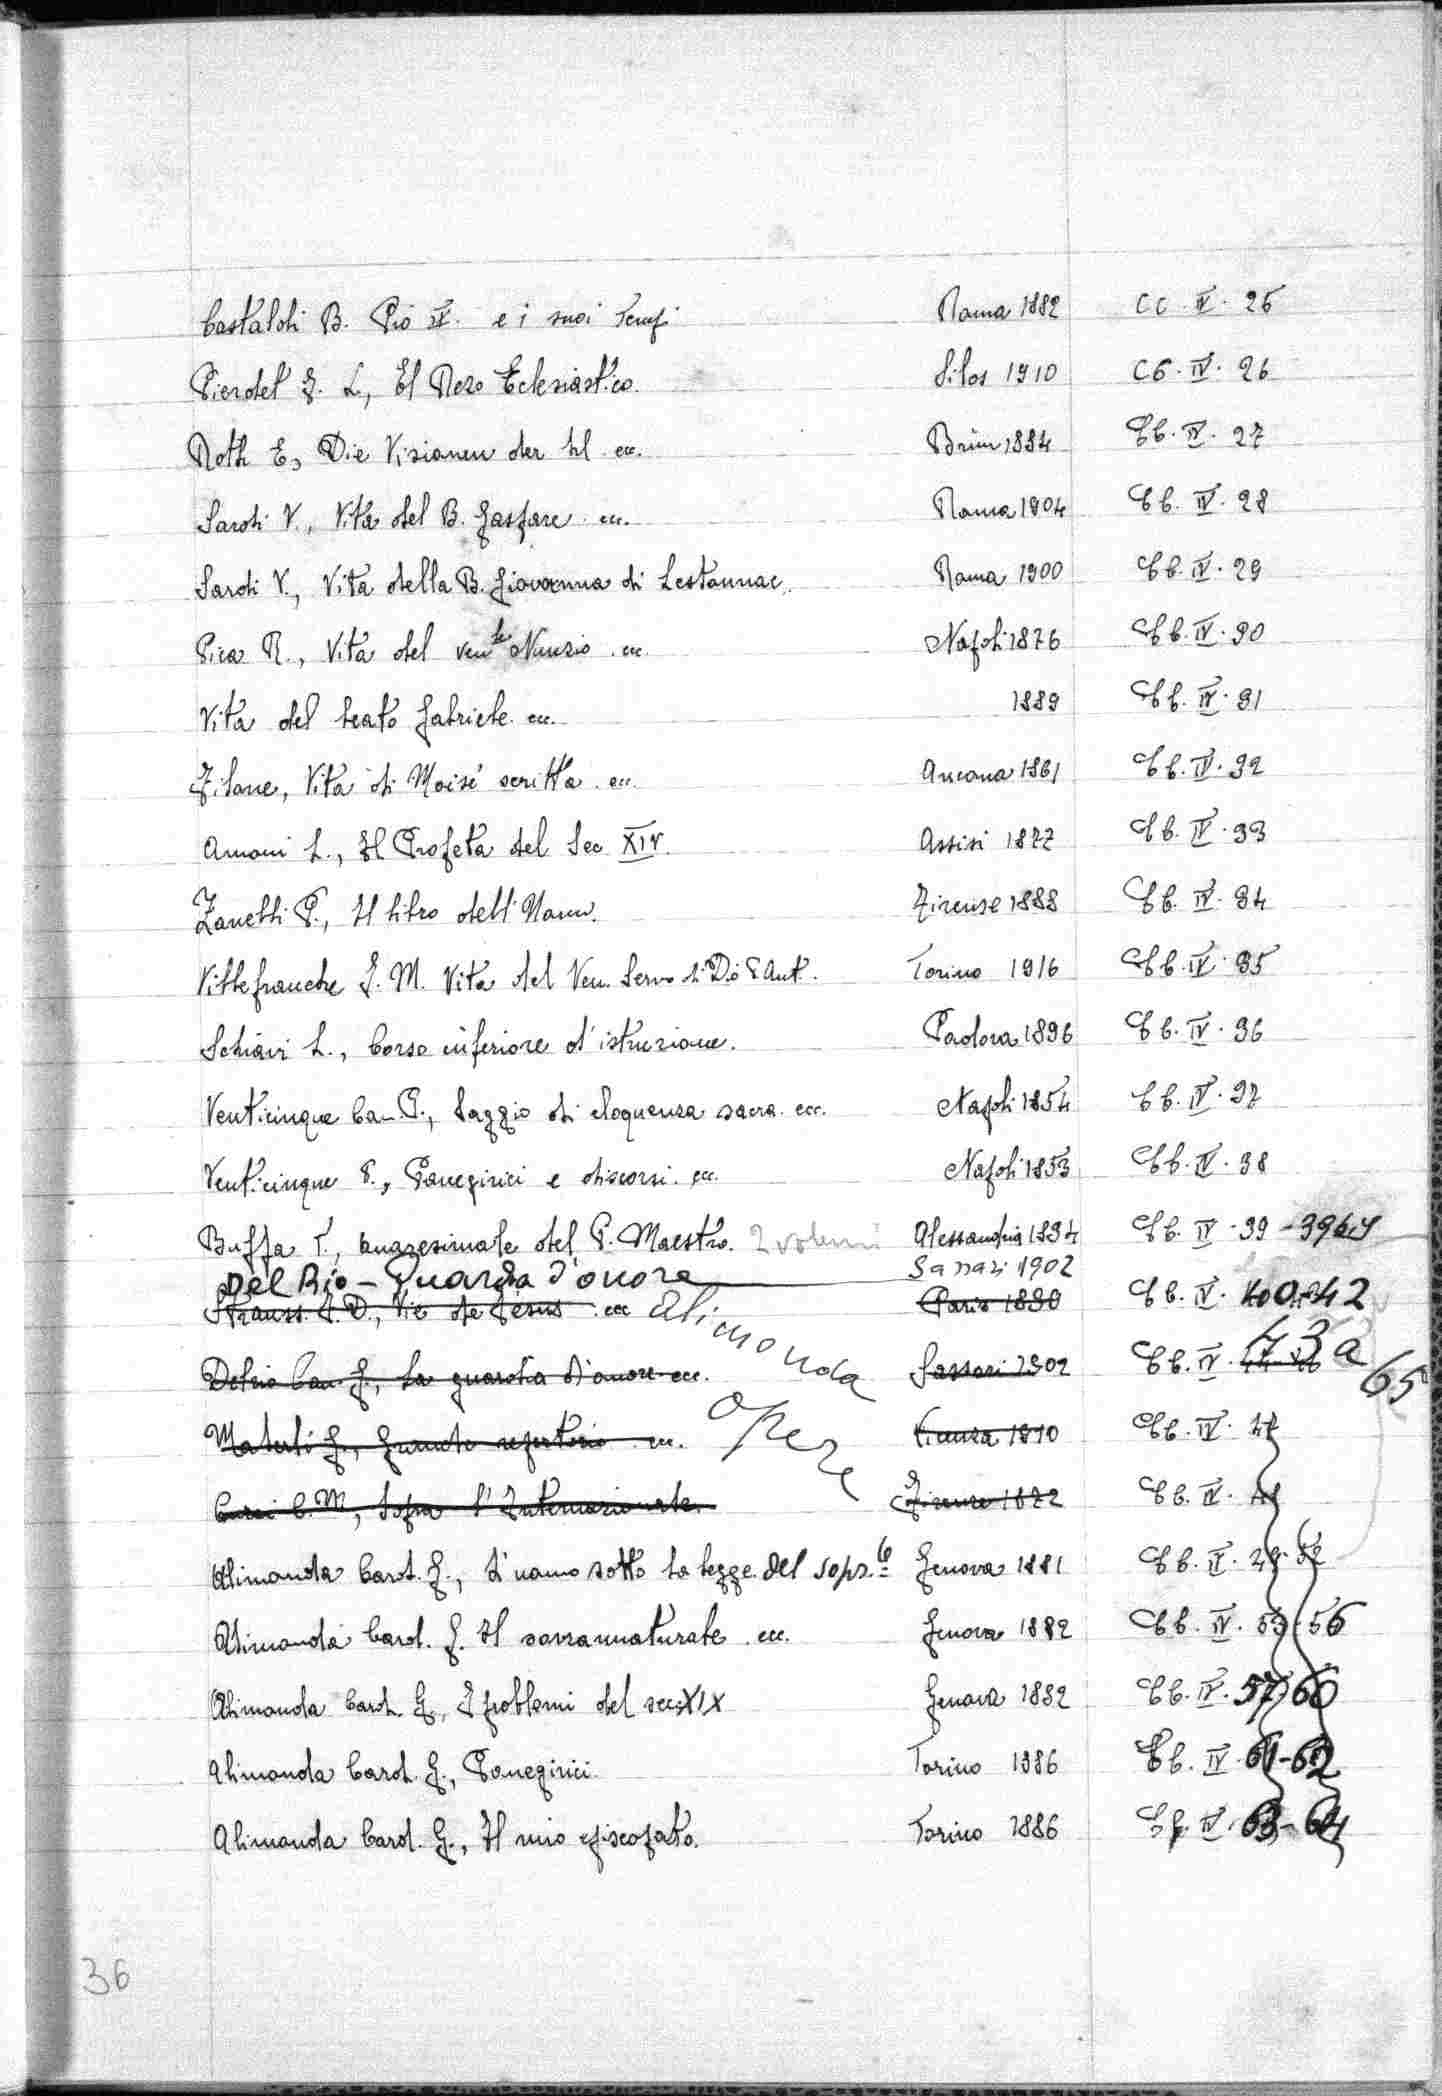 Castaldi B. Pio IX. e i suoi Tempi Roma 1882 CC. IV. 25
Pierdet G. L., El Rezo Eclesiastico. Silos 1910 Cb. IV. 26
Roth E, Die Visionen der hl. ecc. Brün 1884 Cb. IV. 27
Sardi V., Vita del B. Gaspare ecc. Roma 1904 Cb. IV. 28
Sardi V., Vita della B. Giovanna di Lestonnac. Roma 1900 Cb. IV. 29
Pica R., Vita del ven le Nunzio ecc. Napoli 1876 Cb. IV. 30
Vita del beato Gabriele ecc. 1889 Cb. IV. 31
Filone, Vita di Moisé scritta ecc. Ancona 1861 Cb. IV. 32
Amoni L., Il Profeta del Sec XIV. Assisi 1877 Cb. IV. 33
Zanetti P., Il libro dell' Uomo. Firenze 1888 Cb. IV. 34
Villefranche J. M. Vita del Ven. Servo di Dio P. Ant. Torino 1916 Cb. IV. 35
Schiavi L., Corso inferiore d'istruzione. Padova 1896 Cb. IV. 36
Venticinque Can. P., Saggio di eloquenza sacra ecc. Napoli 1854 Cb. IV. 37
Venticinque P., Panegirici e discorsi. ecc. Napoli 1853 Cb. IV. 38
Buffa T., Quaresimale del P. Maestro. 2 volumi Alessandria 1894 Cb. IV. 39-39
Del Rio - Guardia d'onore Sassari 1902
Strauss. F. D., Vie de Jésus ecc Alimonda Paris 1890 Cb. IV. 40-42
Delrio Can. G., La guardia d'onore ecc. Sassari 1902 Cb. IV. 43 a 65
G., Grande repertorio ecc. opere Vicenza 1910 Cb. IV. 47
Curci C. M, Sopra l'Internazionale. Firenze 1872 Cb. IV. 48
Alimonda Card. G., L'uomo sotto la legge del sopr. Genova 1881 Cb. IV. 49-52
Alimonda Card. G. Il sovrannaturale ecc. Genova 1882 Cb. IV. 53-56
Alimonda Card. G., I problemi del sec. XIX Genova 1882 Cb. IV. 57-60
Alimonda Card. G., Panegirici Torino 1886 Cb. IV. 61-62
Alimonda Card. G., Il mio episcopato. Torino 1886 Cb. IV. 63-64
36